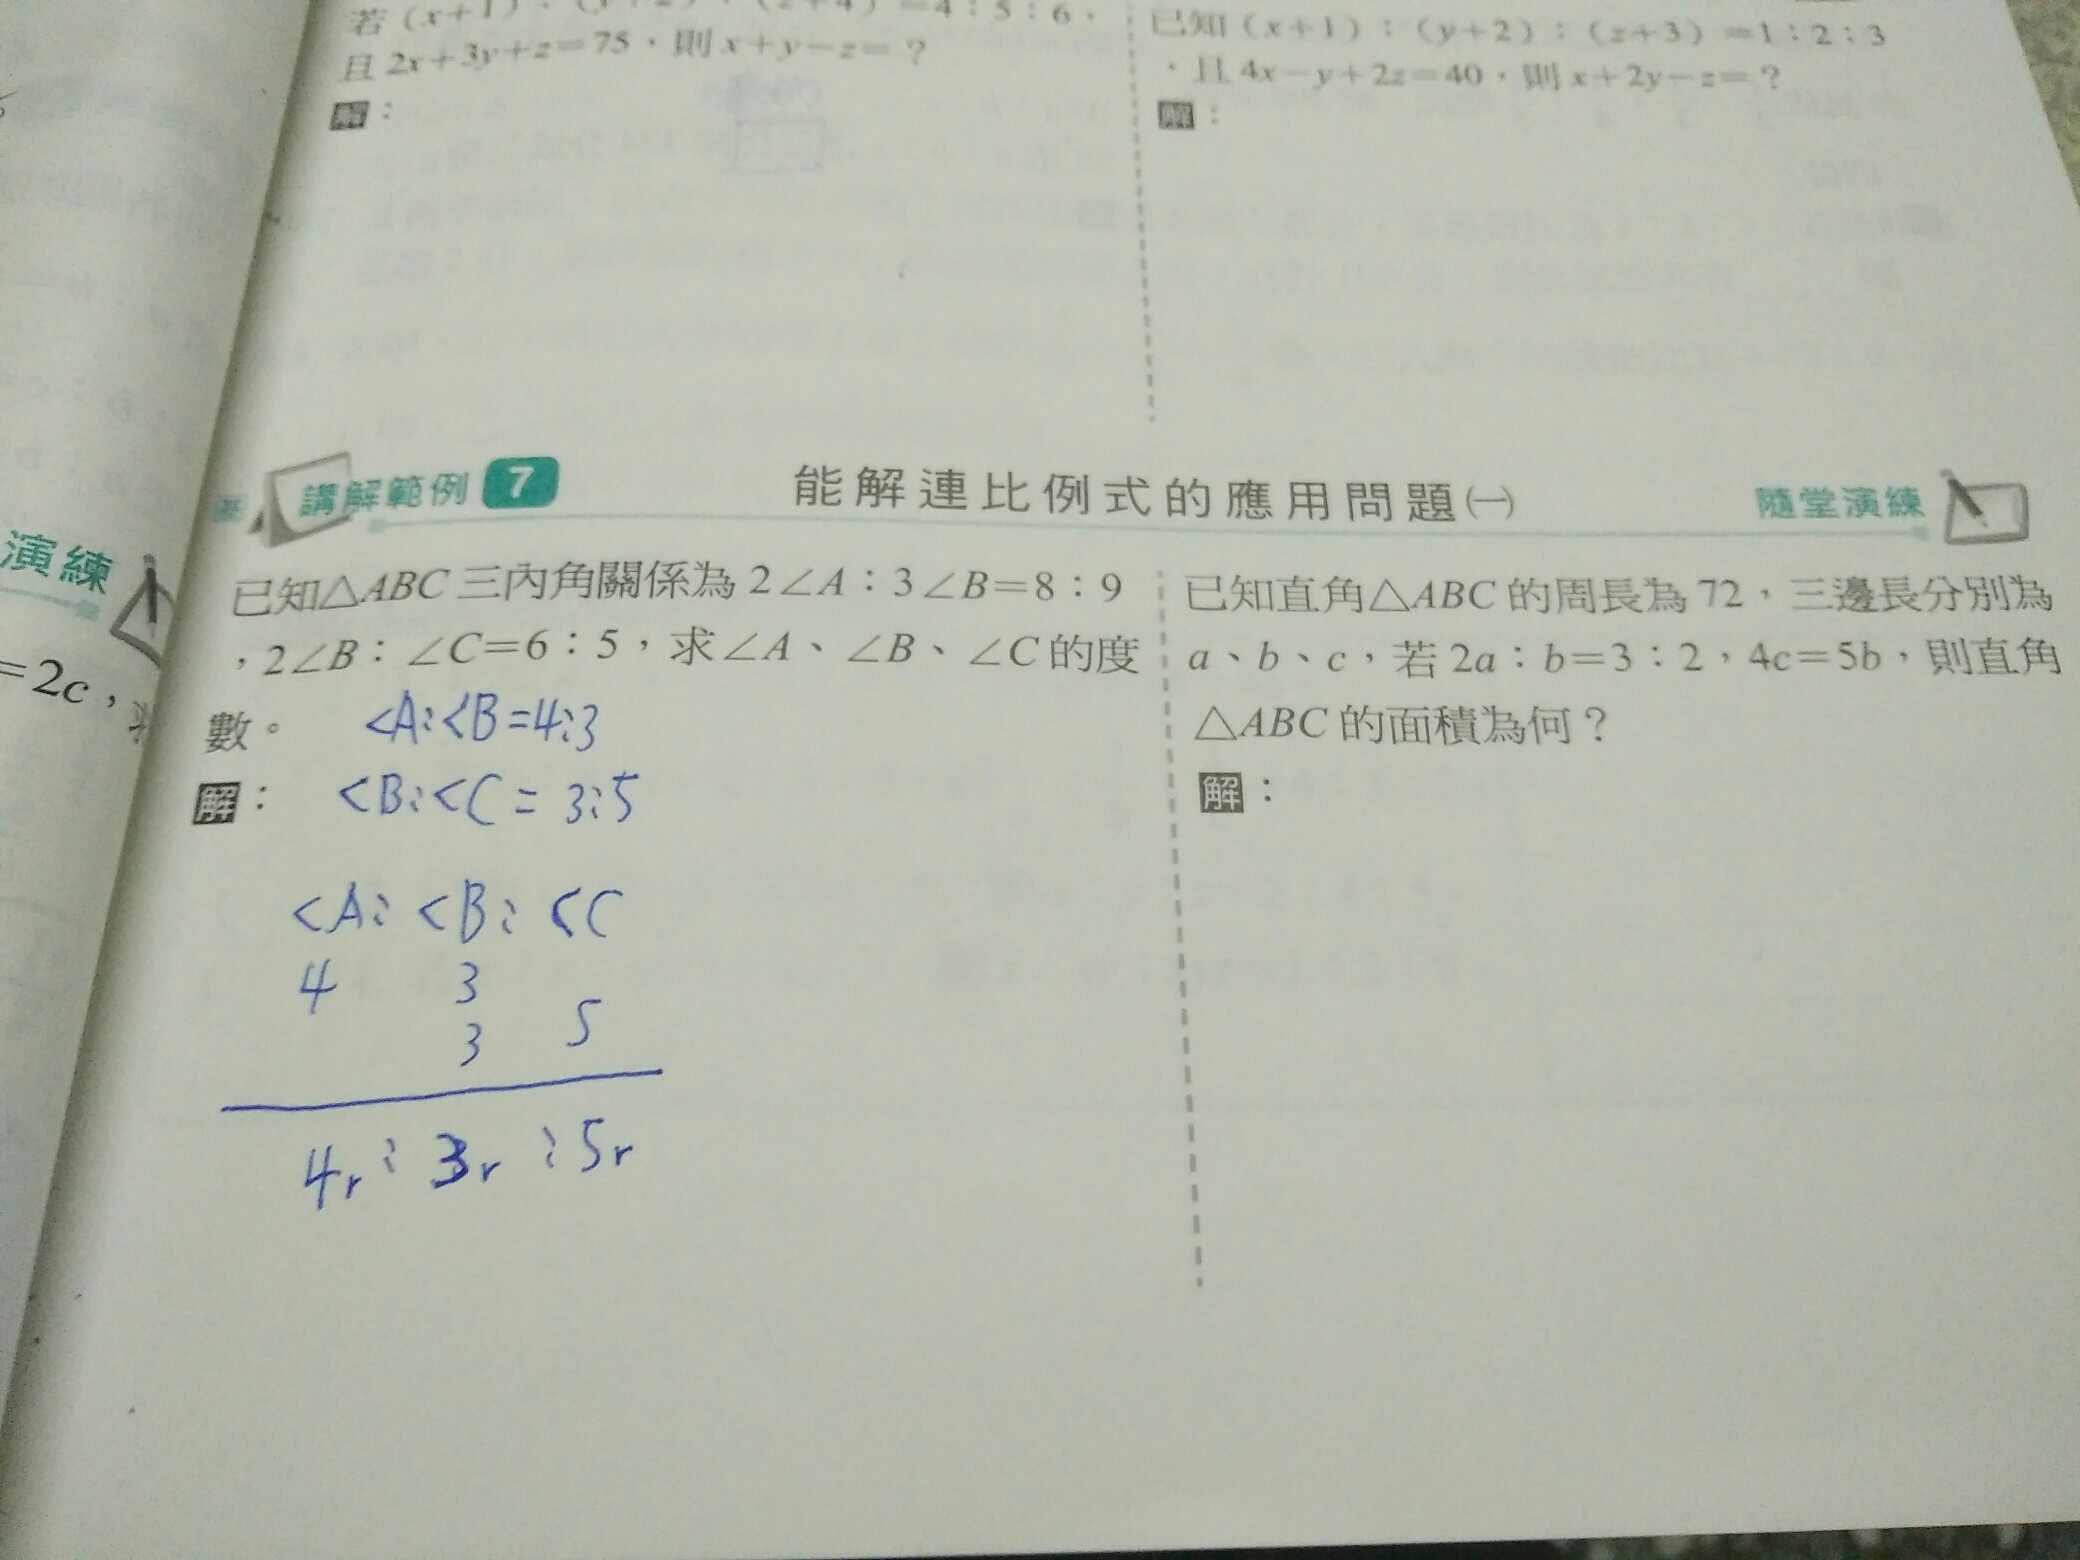 =4：5：6，
且 2x＋3y＋z＝75，則 x＋y－z＝？
解：
已知（x＋1）：（y＋2）：（z＋3）＝1：2：3
，且 4x－y＋2z＝40，則 x＋2y－z＝？
解：
演練
=2c，
講解範例 7 能解連比例式的應用問題㈠ 隨堂演練
已知△ABC 三內角關係為 2∠A：3∠B＝8：9
，2∠B：∠C＝6：5，求∠A、∠B、∠C 的度
數。
<A:<B=4:3
解：
<B:<C = 3:5
<A: <B: <C
4 3
3 5
4r : 3r : 5r
已知直角△ABC 的周長為 72，三邊長分別為
a、b、c，若 2a：b＝3：2，4c＝5b，則直角
△ABC 的面積為何？
解：